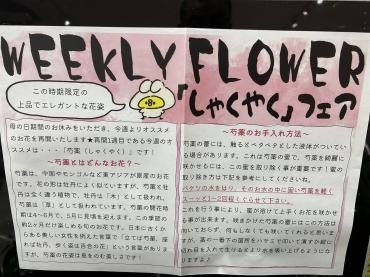 WEEKLY FLOWER
「しゃくやく」フェア
この時期限定の
上品でエレガントな花姿
母の日期間のお休みをいただき、今週よりオススメ
のお花を再開いたします★再開1週目である今週のオ
ススメは・・・「芍薬（しゃくやく）」です！
～芍薬とはどんなお花？～
芍薬は、中国やモンゴルなど東アジアが原産のお花
です。花の形は牡丹によく似ていますが、芍薬と牡
丹は全く違う植物で、牡丹は「木」として扱われ、
芍薬は「草」として扱われています。芍薬の開花時
期は4～6月で、5月に見頃を迎えます。この季節の
約2ヶ月だけ楽しめる旬のお花です。日本に古くか
らある美しい女性を例えた言葉で「立てば芍薬、座
れば牡丹、歩く姿は百合の花」という言葉がありま
すが、芍薬の花姿は息をのむ美しさです！
～芍薬のお手入れ方法～
芍薬の蕾には、触るとベタベタとした液体がついてい
る場合があります。これは芍薬の蜜で、芍薬を綺麗に
咲かせるには、この蜜を取り除く事が重要です！蜜の
取り除き方は下記を参考にしてください。
バケツの水をはり、そのお水の中に固い芍薬を軽く
スーッと1～2回程くぐらせて下さい。
これを行う事により、蜜が溶けて上手くお花を咲かせ
る事が出来ます。咲きかけた芍薬の蕾にはこの方法は
向いておらず、何もしなくても咲いてくれると思いま
すが、茎の一番下の箇所をハサミで叩いて潰すか縦に
切れ目を入れて立てるとより水を吸い上げるようにな
りますよ